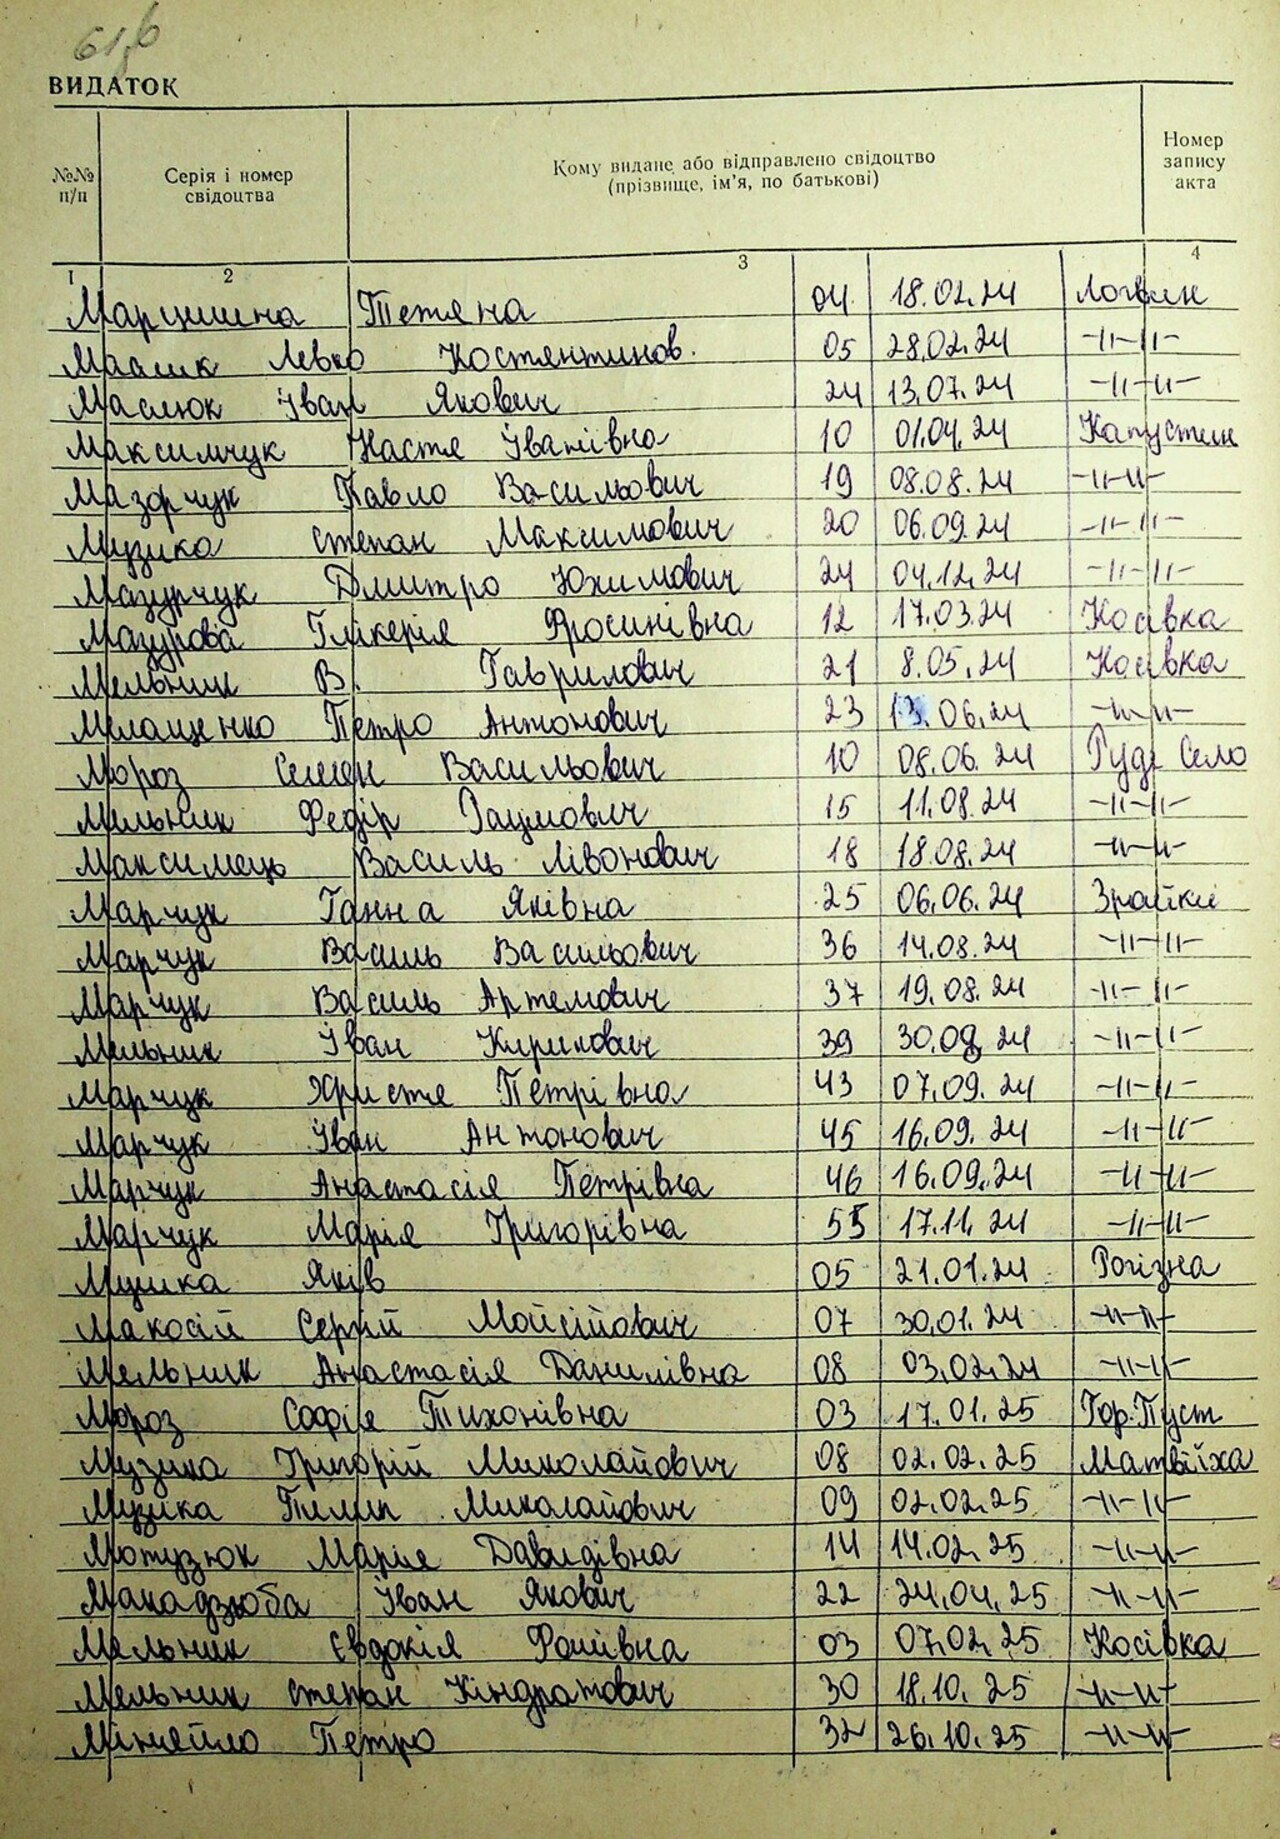 61,б
ВИДАТОК
№№ п/п Серія і номер свідоцтва Кому видане або відправлено свідоцтво (прізвище, ім'я, по батькові) Номер запису акта
1 2 3 4
Тетяна 04 18.02.24 Логвин
Левко Костянтинов. 05 28.02.24 -〃-〃-
Маслюк Іван Якович 24 13.07.24 -〃-〃-
Максимчук Настя Іванівна 10 01.04.24 Капустин
Мазорчук Павло Васильович 19 08.08.24 -〃-〃-
Музика Степан Максимович 20 06.09.24 -〃-〃-
Мазурчук Дмитро Юхимович 24 04.12.24 -〃-〃-
Мазурова Глікерія Фросинівна 12 17.03.24 Косівка
Мельник В. Гаврилович 21 8.05.24 Косівка
Мелащенко Петро Антонович 23 13.06.24 -〃-〃-
Мороз Семен Васильович 10 08.06.24 Руде Село
Мельник Федір 15 11.08.24 -〃-〃-
Максимець Василь Лівонович 18 18.08.24 -〃-〃-
Марчук Ганна Яківна 25 06.06.24 Зрайки
Марчук Василь Васильович 36 14.08.24 -〃-〃-
Марчук Василь Артемович 37 19.08.24 -〃-〃-
Мельник Іван Кирилович 39 30.08.24 -〃-〃-
Марчук Христя Петрівна 43 07.09.24 -〃-〃-
Марчук Іван Антонович 45 16.09.24 -〃-〃-
Марчук Анастасія Петрівна 46 16.09.24 -〃-〃-
Марчук Марія Григорівна 55 17.11.24 -〃-〃-
Яків 05 21.01.24 Рогізна
Макосій Сергій Мойсійович 07 30.01.24 -〃-〃-
Мельник Анастасія Данилівна 08 03.02.24 -〃-〃-
Мороз Софія Тихонівна 03 17.01.25 Гор.Пуст
Музика Григорій Миколайович 08 02.02.25 Матвіїха
Музика Пилип Миколайович 09 02.02.25 -〃-〃-
Мотузюк Марія Давидівна 14 14.02.25 -〃-〃-
Макадзюба Іван Якович 22 24.04.25 -〃-〃-
Мельник Євдокія Фоміївна 03 07.02.25 Косівка
Мельник Степан Кіндратович 30 18.10.25 -〃-〃-
Міняйло Петро 32 26.10.25 -〃-〃-